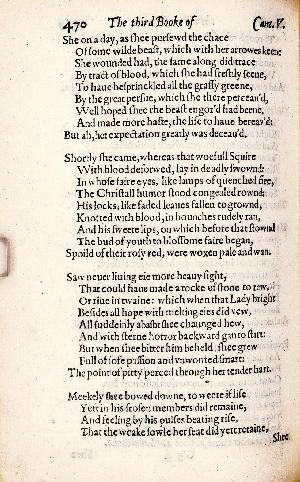 470 The third Booke of Cant. V.
She on a day, as shee pursewd the chace
Of some wilde beast, which with her arrowes keene
She wounded had, the same along did trace
By tract of blood, which she had freshly seene,
To haue besprinckled all the grassy greene,
By the great persue, which she there perceau'd,
Well hoped shee the beast engor'd had beene,
And made more haste, the life to haue bereav'd:
But ah, her expectation greatly was deceau'd.
Shortly she came, whereas that woefull Squire
With blood deformed, lay in deadly swownd:
In whose faire eyes, like lamps of quenched fire,
The Christall humor stood congealed rownd;
His locks, like faded leaues fallen to grownd,
Knotted with blood, in bounches rudely ran,
And his sweete lips, on which before that stownd
The bud of youth to blossome faire began,
Spoild of their rosy red, were woxen pale and wan.
Saw neuer liuing eie more heauy sight,
That could haue made a rocke of stone to rew,
Or riue in twaine: which when that Lady bright
Besides all hope with melting eies did vew,
All suddeinly abasht shee chaunged hew,
And with sterne horror backward gan to start:
But when shee better him beheld, shee grew
Full of soft passion and vnwonted smart:
The point of pitty perced through her tender hart.
Meekely shee bowed downe, to weete if life
Yett in his frosen members did remaine,
And feeling by his pulses beating rife,
That the weake sowle her seat did yett retaine,
Shee